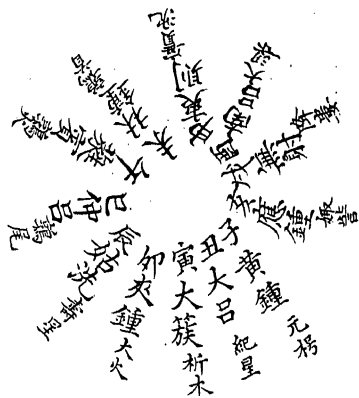 子黄鍾元枵
丑大吕紀星
寅大簇析木
卯夾鍾大火
辰姑洗壽星
巳仲吕鶉尾
午蕤賓鶉火
未林鍾鶉首
申夷則實沈
酉南吕大梁
戌無射降婁
亥應鍾娵訾